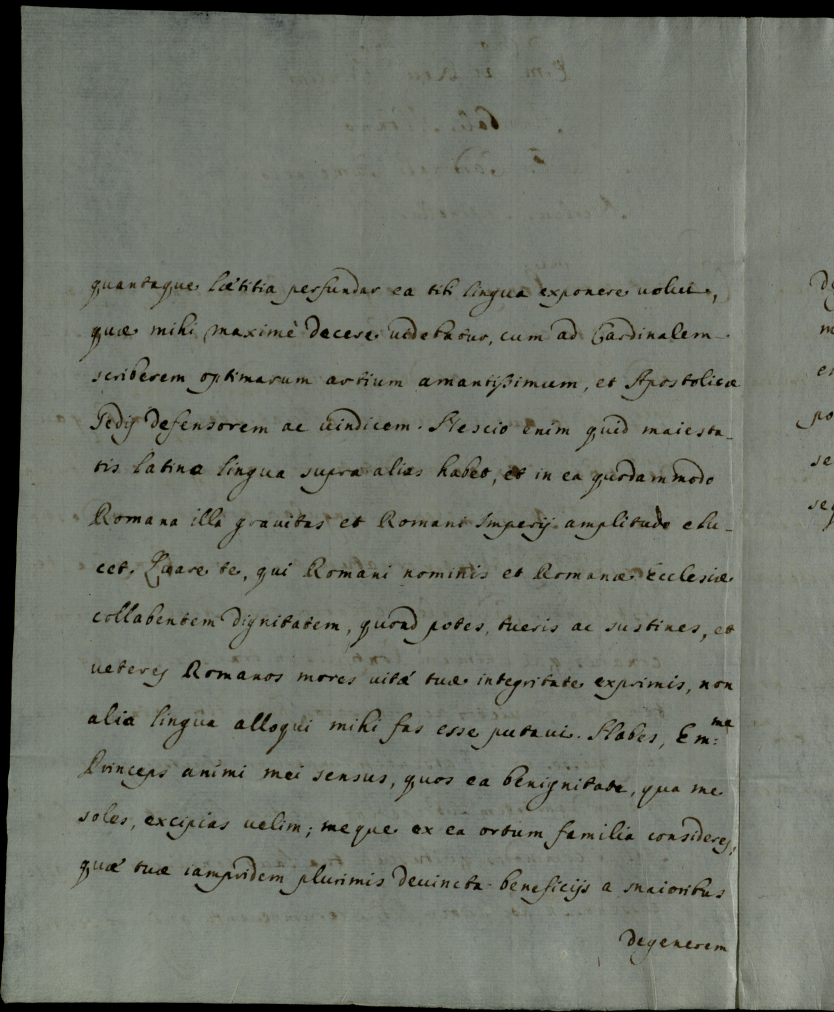 quantaque lætitia perfundar ea tibi lingua exponere volui,
quæ mihi maximè decere videbatur, cum ad Cardinalem
scriberem optimarum artium amantissimum, et Apostolicæ
Sedis defensorem ac vindicem. Nescio enim quid maiesta-
tis latina lingua supra alias habet, et in ea quodammodo
Romana illa gravitas et Romani Imperij amplitudo elu-
cet. Quare te, qui Romani nominis et Romanæ Ecclesiæ
collabentem dignitatem, quoad potes, tueris ac sustines, et
veteres Romanos mores vitæ tuæ integritate exprimis, non
alia lingua alloqui mihi fas esse putavi. Habes, Em:me
Princeps animi mei sensus, quos ea benignitate, qua me
soles, excipias velim; meque ex ea ortum familia consideres,
quæ tuæ iampridem plurimis devincta beneficijs a maioribus
degenerem